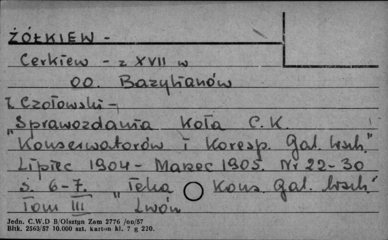 ŻÓŁKIEW -
Cerkiew - z XVII w
OO. Bazylianów
Czołowski -
"Sprawozdania Koła C.K.
Konserwatorów i Koresp. Gal. wsch."
Lipiec 1904 - Marzec 1905. Nr 22-30
s. 6-7. "Teka Kons. Gal. wsch."
Tom III Lwów
Jedn. C.W.D B/Olsztyn Zam 2776 /en/57
Bltk. 2563/57 10.000 szt. karton kl. 7 g 220.